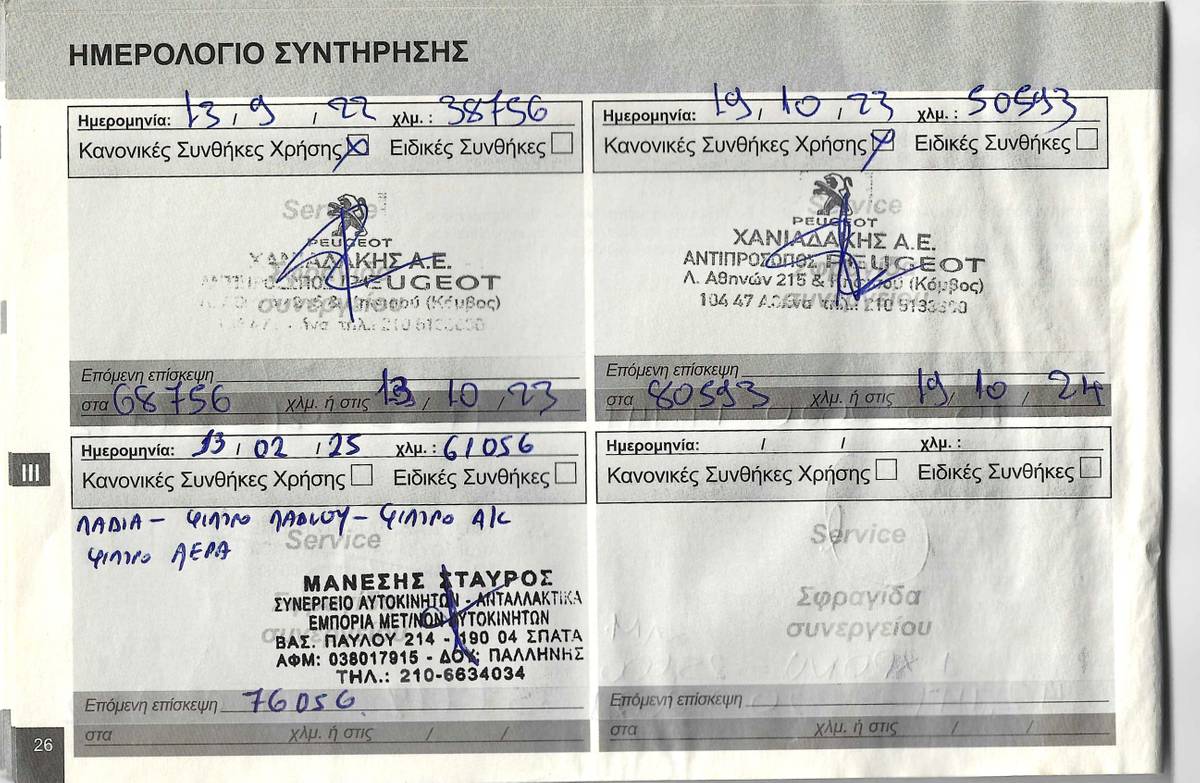 ΗΜΕΡΟΛΟΓΙΟ ΣΥΝΤΗΡΗΣΗΣ
Ημερομηνία: 13 / 9 / 22 χλμ. : 38756
Κανονικές Συνθήκες Χρήσης Ειδικές Συνθήκες
Service
PEUGEOT
ΧΑΝΙΑΔΑΚΗΣ Α.Ε.
PEUGEOT
(Κόμβος)
συνεργείου
τηλ.: 210
Επόμενη επίσκεψη
στα 68756 χλμ. ή στις 13 / 10 / 23
Ημερομηνία: 19 / 10 / 23 χλμ. : 50593
Κανονικές Συνθήκες Χρήσης Ειδικές Συνθήκες
Service
PEUGEOT
ΧΑΝΙΑΔΑΚΗΣ Α.Ε.
ΑΝΤΙΠΡΟΣΩΠΟΣ PEUGEOT
Λ. Αθηνών 215 & Κηφισού (Κόμβος)
104 47 Αθήνα τηλ.: 210
Επόμενη επίσκεψη
στα 80593 χλμ. ή στις 19 / 10 / 24
Ημερομηνία: 13 / 02 / 25 χλμ. : 61056
Κανονικές Συνθήκες Χρήσης Ειδικές Συνθήκες
ΛΑΔΙΑ - ΦΙΛΤΡΟ ΛΑΔΙΟΥ - ΦΙΛΤΡΟ A/C
ΦΙΛΤΡΟ ΑΕΡΑ
Service
ΜΑΝΕΣΗΣ ΣΤΑΥΡΟΣ
ΣΥΝΕΡΓΕΙΟ ΑΥΤΟΚΙΝΗΤΩΝ - ΑΝΤΑΛΛΑΚΤΙΚΑ
ΕΜΠΟΡΙΑ ΜΕΤ/ΝΩΝ ΑΥΤΟΚΙΝΗΤΩΝ
ΒΑΣ. ΠΑΥΛΟΥ 214 - 190 04 ΣΠΑΤΑ
ΑΦΜ: 038017915 - ΔΟΥ: ΠΑΛΛΗΝΗΣ
ΤΗΛ.: 210-6634034
Επόμενη επίσκεψη 76056
στα χλμ. ή στις / /
Ημερομηνία: / / χλμ. :
Κανονικές Συνθήκες Χρήσης Ειδικές Συνθήκες
Service
Σφραγίδα
συνεργείου
Επόμενη επίσκεψη
στα χλμ. ή στις / /
III
26